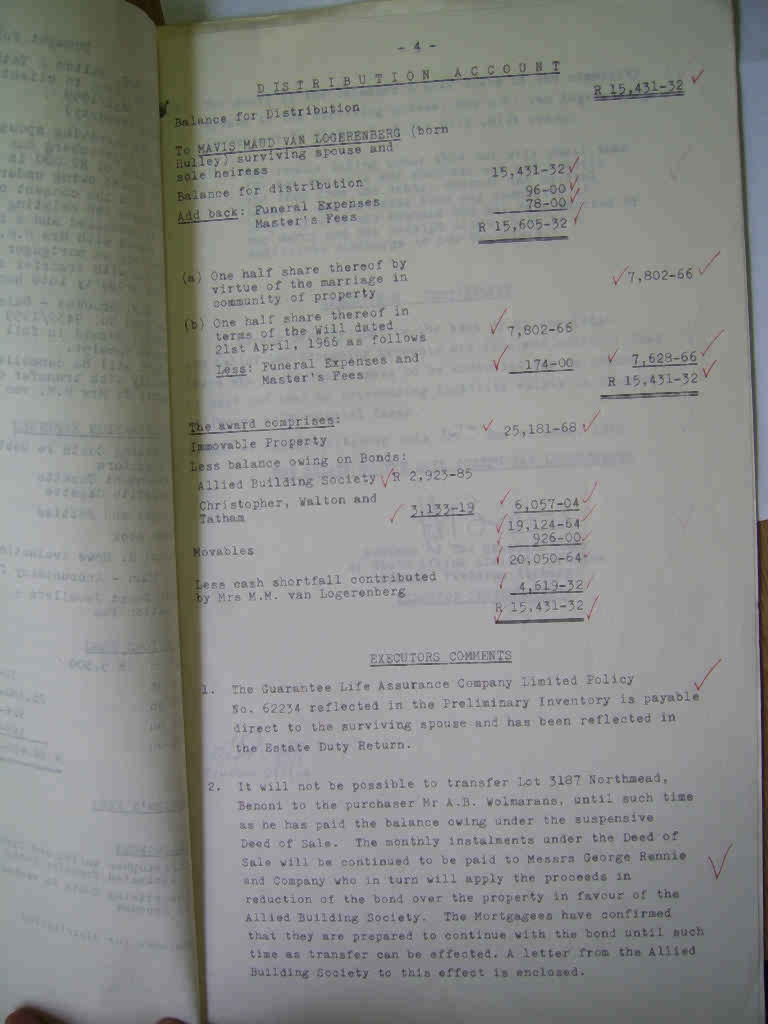 - 4 -
DISTRIBUTION ACCOUNT
Balance for Distribution R 15,431-32
To MAVIS MAUD VAN LOGERENBERG (born
Hulley) surviving spouse and
sole heiress
Balance for distribution 15,431-32
Add back: Funeral Expenses 96-00
Master's Fees 78-00
R 15,605-32
(a) One half share thereof by
virtue of the marriage in
community of property 7,802-66
(b) One half share thereof in
terms of the Will dated 7,802-66
21st April, 1966 as follows
Less: Funeral Expenses and 174-00 7,628-66
Master's Fees R 15,431-32
The award comprises:
Immovable Property 25,181-68
Less balance owing on Bonds:
Allied Building Society R 2,923-85
Christopher, Walton and
Tatham 3,133-19 6,057-04
19,124-64
Movables 926-00
20,050-64
Less cash shortfall contributed
by Mrs M.M. van Logerenberg 4,619-32
R 15,431-32
EXECUTORS COMMENTS
1. The Guarantee Life Assurance Company Limited Policy
No. 62234 reflected in the Preliminary Inventory is payable
direct to the surviving spouse and has been reflected in
the Estate Duty Return.
2. It will not be possible to transfer Lot 3187 Northmead,
Benoni to the purchaser Mr A.B. Wolmarans, until such time
as he has paid the balance owing under the suspensive
Deed of Sale. The monthly instalments under the Deed of
Sale will be continued to be paid to Messrs George Rennie
and Company who in turn will apply the proceeds in
reduction of the bond over the property in favour of the
Allied Building Society. The Mortgagees have confirmed
that they are prepared to continue with the bond until such
time as transfer can be effected. A letter from the Allied
Building Society to this effect is enclosed.